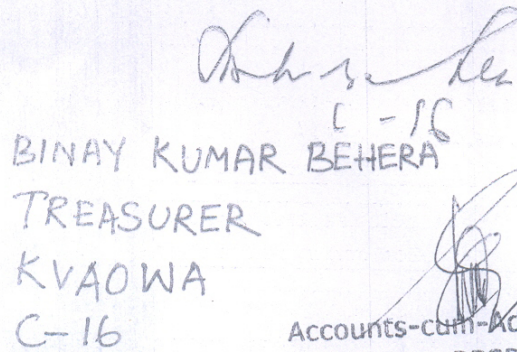 C-16
BINAY KUMAR BEHERA
TREASURER
KVAOWA
C-16
Accounts-cum-